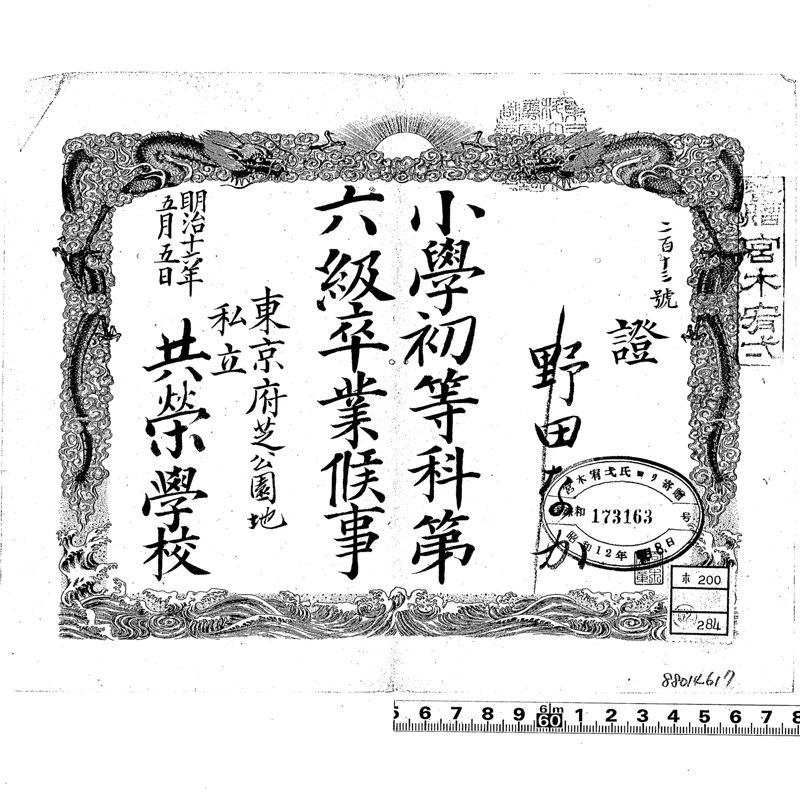 二百十三號
證
野田なか
小學初等科第
六級卒業候事
東京府芝公園地
私立
共榮學校
明治十六年
五月五日
宮木宥弌
宮木宥弌氏ヨリ寄贈
昭和 173163 号
昭和12年 8日
木 200
284
88014617
5 6 7 8 9 6m 60 1 2 3 4 5 6 7 8